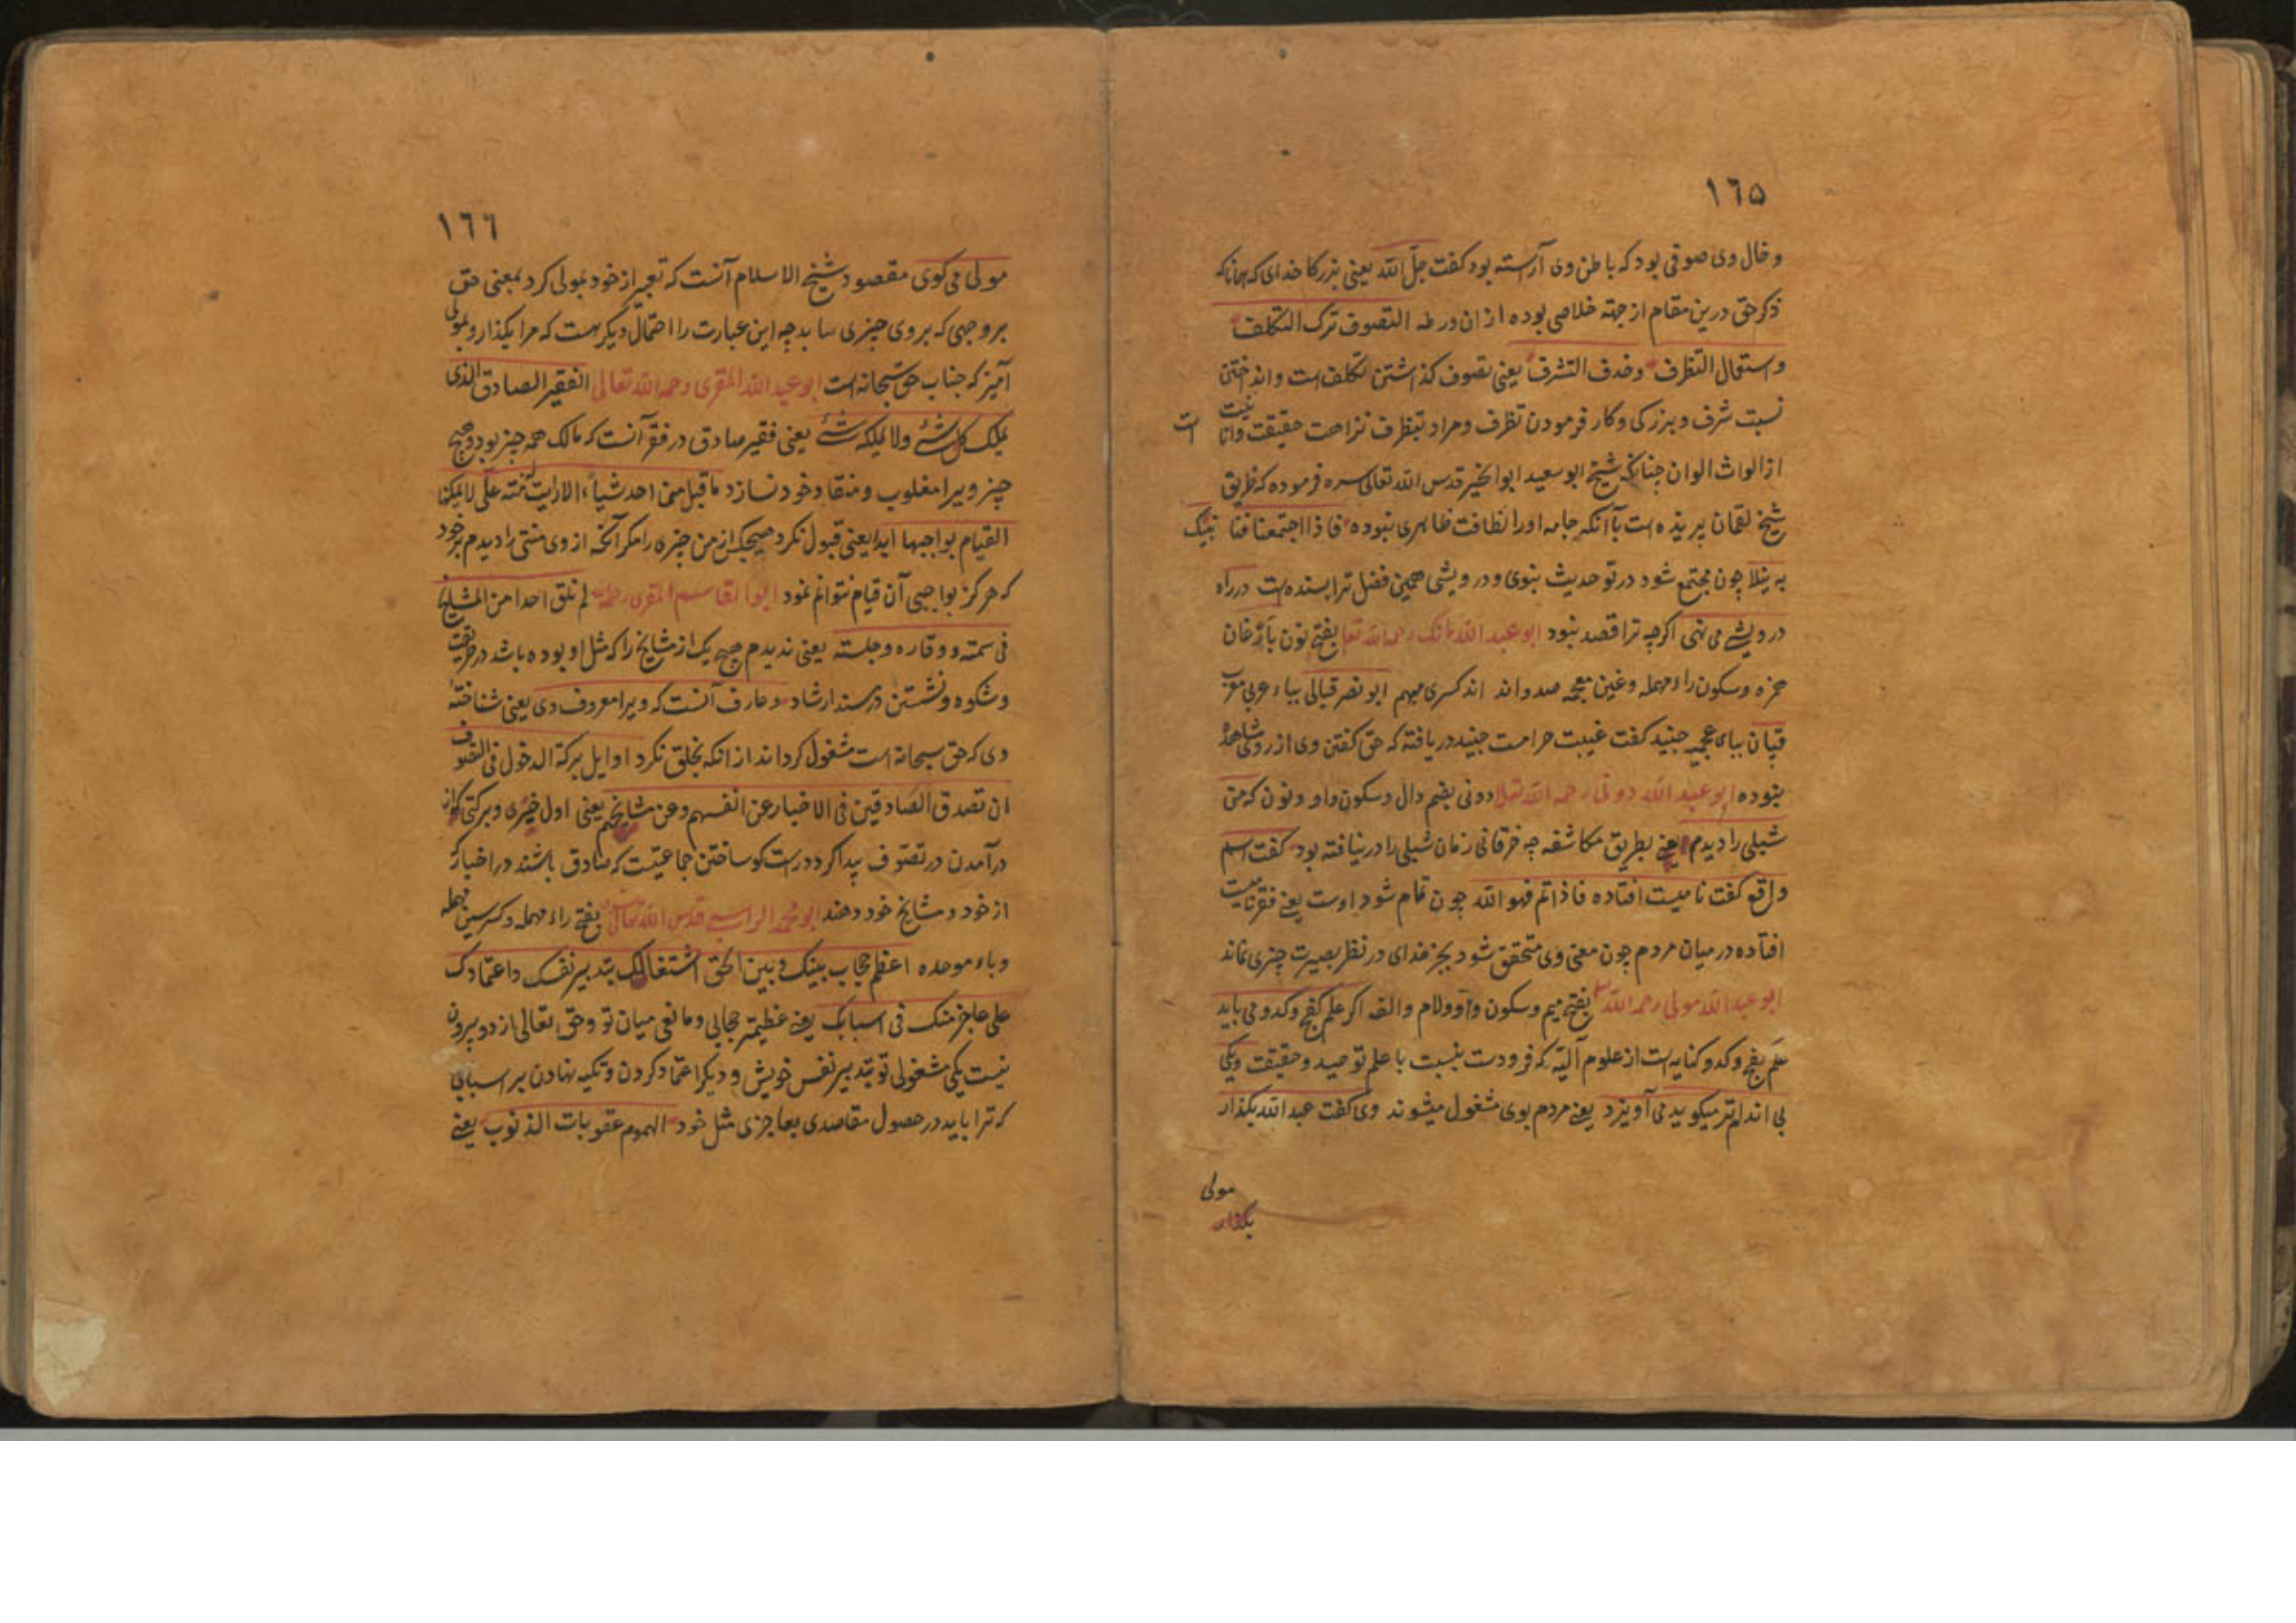 ١٦٥
وخال وی صوفی بود که باطن وی آراسته بود کفت جل الله یعنی بزرکا خدای که همانا که
ذکر حق درین مقام از جهة خلاصی بوده از ان ورطه التصوف ترک التکلف
واستعمال التظرف وخدف التشرف یعنی تصوف کذاشتن تکلف است وانداختن
نسبت شرف وبزرکی وکار فرمودن تظرف ومراد بتظرف نزاهت حقیقت
از الواث الوان چنانکه شیخ ابو سعید ابو الخیر قدس الله تعالی سره فرموده که ظریق
شیخ لقمان پرنده است باآنکه جامه اورا نظافت ظاهری نبوده فاذا اجتمعنا فنا بنیک
به ینلا چون مجتمع شود در تو حدیث نبوی ودرویشی همین فضل ترا بسنده است در راه
درویشی می نهی اکرچه ترا قصد نبود ابو عبد الله مانک رحمه الله تعا بفتح نون باَرّغان
همزه وسکون راء مهمله وغین معجمه صد واند اند کسری مبهم ابو نصر قبالی بباء عربی معرب
قپان ببای عجمیه جنید کفت غیبت حرامست جنید دریافته که حق کفتن وی از روی مشاهده
نبوده ابو عبد الله دونی رحمه الله تعالی دونی بضم دال وسکون واو ونون که من
شبلی را دیدم یعنی بطریق مکاشفه چه خرقانی زمان شبلی را درنیافته بود کفت اسم
واقع کفت نامیست افتاده فاذا تم فهو الله چون تمام شود اوست یعنی فقر نامیست
افتاده در میان مردم چون معنی وی متحقق شود بجز خدای در نظر بصیرت چیزی نماند
ابو عبد الله مولی رحمه الله بفتح میم وسکون واو ولام والف اکر علم کفج وکدو می باید
علم کفج وکدو کنایه است از علوم آلیّه که فرودست بنسبت با علم توحید وحقیقت ویکی
بی اندام تر میکوید می آویزد یعنی مردم بوی مشغول میشوند وی کفت عبد الله بکذار
مولی
بکذار
١٦٦
مولی می کوی مقصود شیخ الاسلام آنست که تعبیر از خود بمولی کرد بمعنی حق
بروجهی که بروی چیزی سابد چه این عبارت را احتمال دیکر هست که مرا بکذار وبمولی
آمیز که جناب حق سبحانه است ابو عبد الله المقری رحمه الله تعالی الفقیر الصادق الذی
یملک کل شئ ولا یملکه شئ یعنی فقیر صادق در فقر آنست که مالک همه چیز بود وهیچ
چیز ویرا مغلوب ومنقاد خود نسازد ما قبل منی احد شیأ الا رایت له منته علی لا یمکننا
القیام بواجبها ابدا یعنی قبول نکرد هیچکس از من چیزه را مکر آنکه از وی منتی را دیدم بر خود
که هرکز بواجبی آن قیام نتوانم نمود ابو القاسم المقری رحمه الله لم نلق احدا من المشایخ
فی سمته ووقاره وجلسته یعنی ندیدم هیچ یک از مشایخ را که مثل او بوده باشد در طریقت
وشکوه ونشستن در مسند ارشاد وعارف آنست که ویرا معروف وی یعنی شناخته
وی که حق سبحانه است مشغول کرداند از انکه بخلق نکرد اوایل برکة الدخول فی التصوف
ان تصدق الصادقین فی الاخبار عن انفسهم وعن مشایخهم یعنی اول خیری وبرکتی که از
درآمدن در تصوف پیدا کردد راست کو ساختن جماعتیست که صادق باشند در اخبار که
از خود ومشایخ خود دهند ابو محمد الراسبی قدس الله تعالی بفتح راء مهمله وکسر سین مهمله
وباء موحده اعظم حجاب بینک وبین الحق اشتغالک بتدبیر نفسک واعتمادک
علی عاجز مثلک فی اسبابک یعنی عظیمتر حجابی ومانعی میان تو وحق تعالی از دو بیرون
نیست یکی مشغولی تو بتدبیر نفس خویش ودیکر اعتماد کردن وتکیه نهادن بر اسبابی
که ترا باید در حصول مقاصدی بعاجزی مثل خود الهموم عقوبات الذنوب یعنی